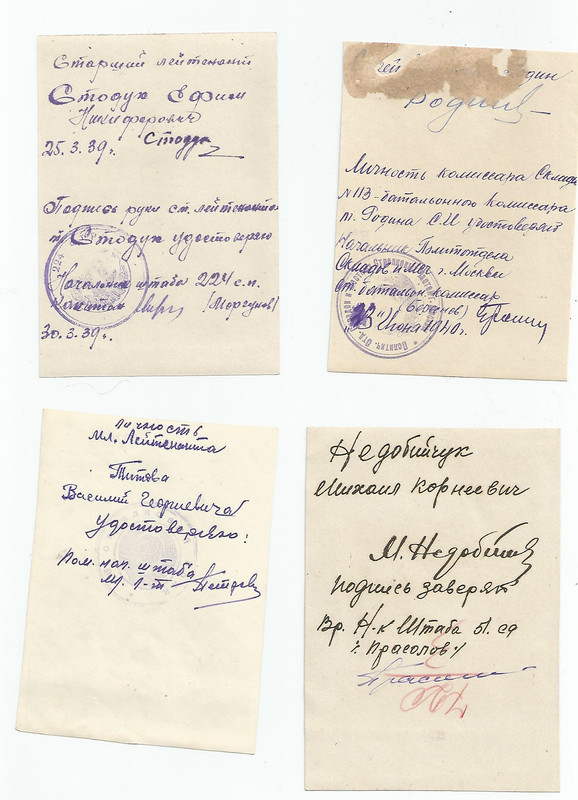 Старший лейтенант
Стодух Ефим
Никиферович
25.3.39г.
Подпись руки ст. лейтенанта
т. Стодух удостоверяю
Начальник штаба 224 с.п.
Капитан (Моргунов)
30.3.39г.
Родин
Личность комиссара Склада
№ 113 - батальонного комиссара
т. Родина С.И удостоверяет
Начальник Политотдела
Складов и г. Москвы
Ст. батальон. комиссар
"23" Июня 1940г.
Личность
Мл. Лейтенанта
Титова
Василий Георгиевича
Удостоверяю:
Пом. нач. штаба
мл. л-т Петров
Недобийчук
Михаил Корнеевич
М. Недобийч
Подпись заверяю
Вр. Н-к Штаба 51. сд
/. Прасолов ./